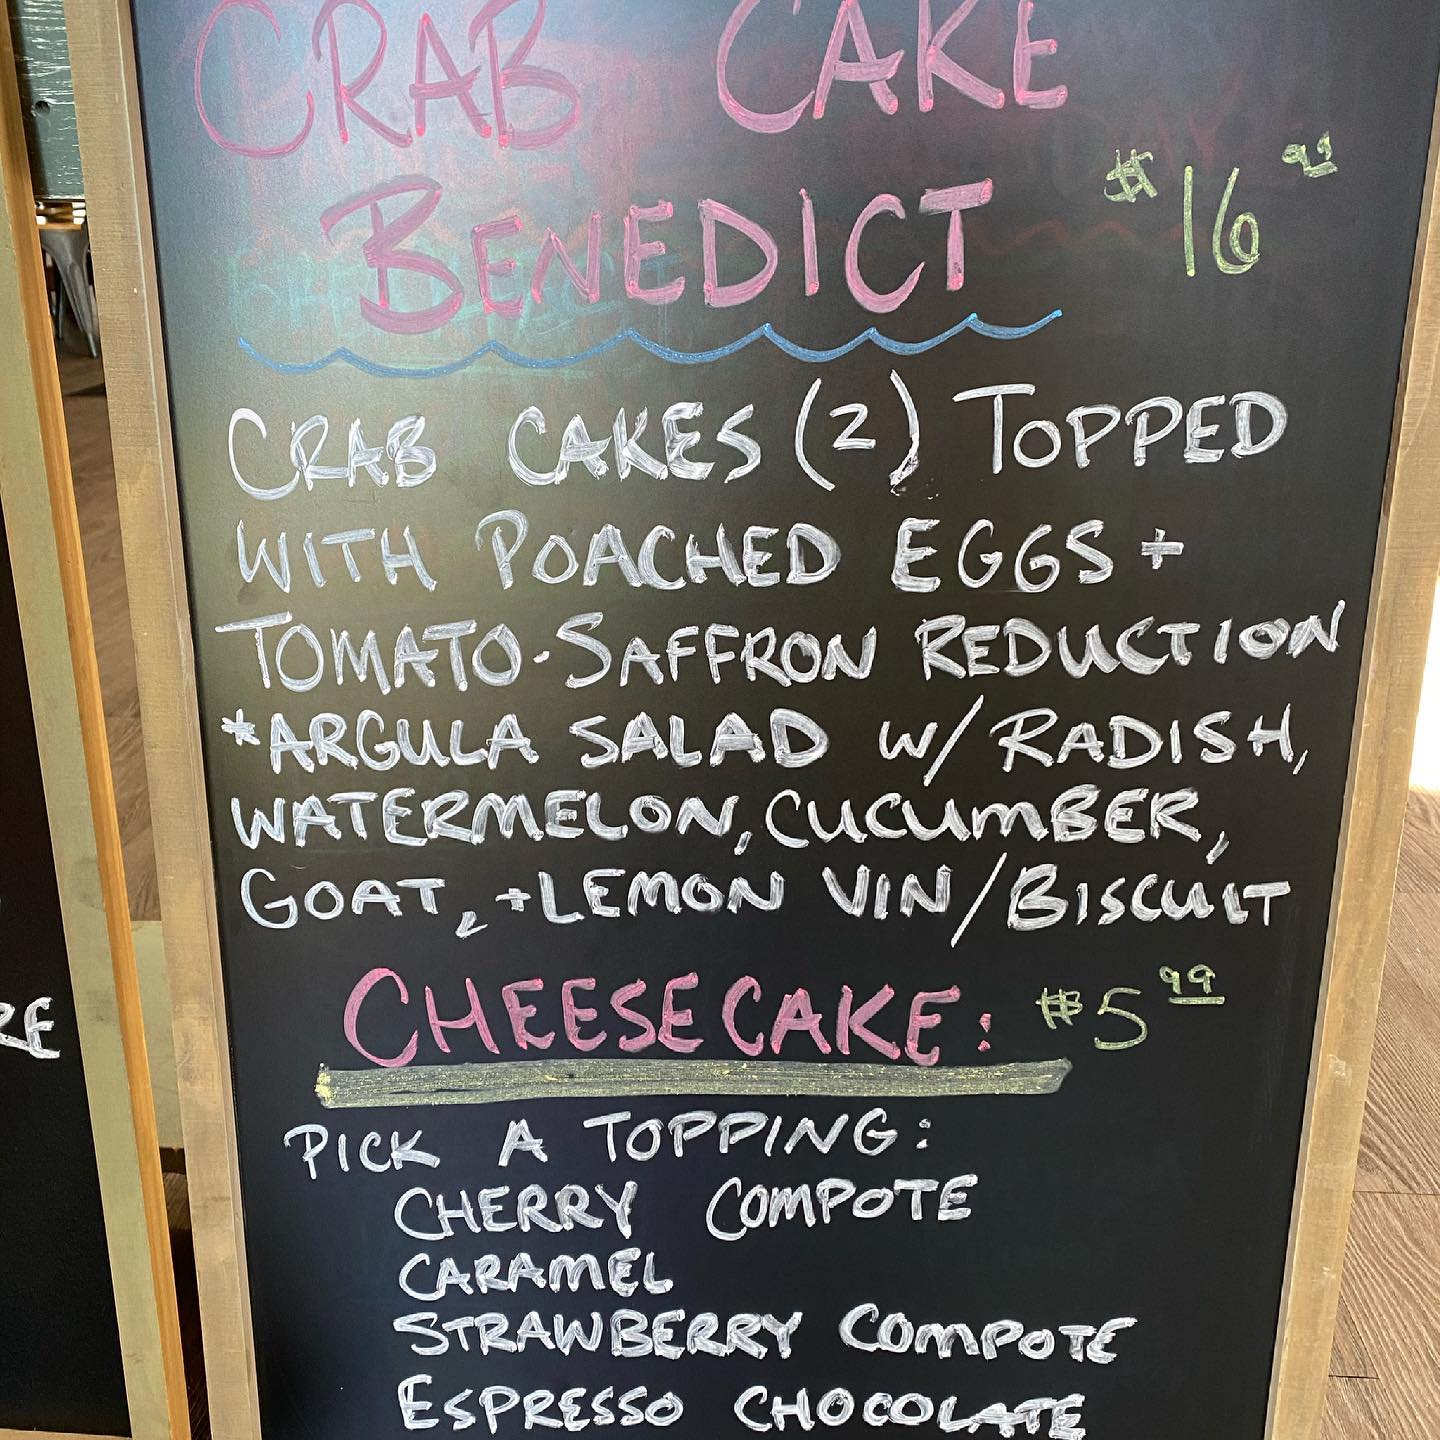 CRAB CAKE
BENEDICT $16 99
CRAB CAKES (2) TOPPED
WITH POACHED EGGS +
TOMATO-SAFFRON REDUCTION
*ARGULA SALAD W/ RADISH,
WATERMELON, CUCUMBER,
GOAT, + LEMON VIN/BISCUIT
CHEESECAKE: $5 99
PICK A TOPPING:
CHERRY COMPOTE
CARAMEL
STRAWBERRY COMPOTE
ESPRESSO CHOCOLATE